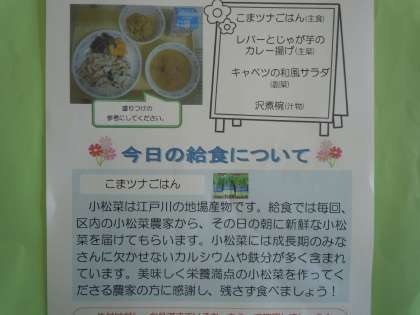 こまツナごはん(主食)
レバーとじゃが芋の
カレー揚げ(主菜)
キャベツの和風サラダ
(副菜)
沢煮椀(汁物)
盛りつけの
参考にしてください。
今日の給食について
こまツナごはん
小松菜は江戸川の地場産物です。給食では毎回、
区内の小松菜農家から、その日の朝に新鮮な小松
菜を届けてもらいます。小松菜には成長期のみな
さんに欠かせないカルシウムや鉄分が多く含まれ
ています。美味しく栄養満点の小松菜を作ってく
ださる農家の方に感謝し、残さず食べましょう!